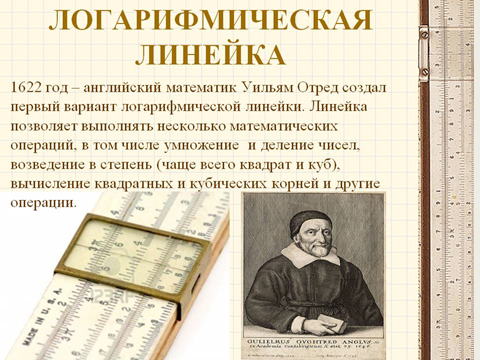 ЛОГАРИФМИЧЕСКАЯ
ЛИНЕЙКА
1622 год – английский математик Уильям Отред создал
первый вариант логарифмической линейки. Линейка
позволяет выполнять несколько математических
операций, в том числе умножение и деление чисел,
возведение в степень (чаще всего квадрат и куб),
вычисление квадратных и кубических корней и другие
операции.
MADE IN U.S.A.
GULIELMUS OUGHTRED ANGLUS